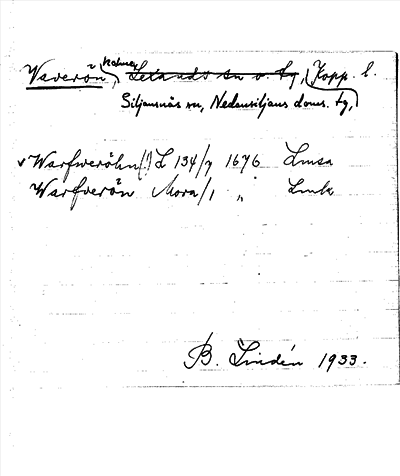 Waverön, holme, Leksands sn o. tg, Kopp. l.
Siljansnäs sn, Nedansiljans doms. tg,
v Warfweröhn(!) L 134/7 1676 Lmsa
Warfverön Mora/1 " Lmk
B. Lindén 1933.